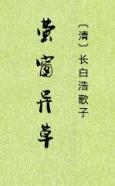 〔清〕长白浩歌子
萤窗异草